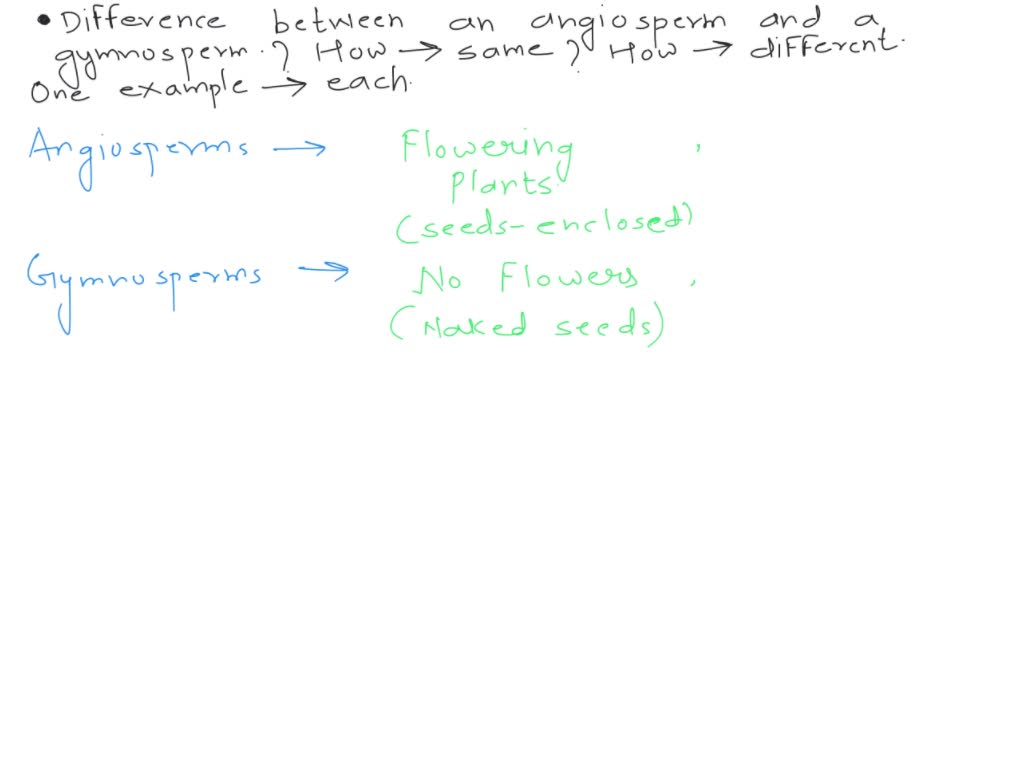 • Difference between an angiosperm and a
gymnosperm.? How → same? How → different.
One example → each.
Angiosperms → Flowering ,
Plants.
(seeds-enclosed)
Gymnosperms → No Flowers ,
(Naked seeds)